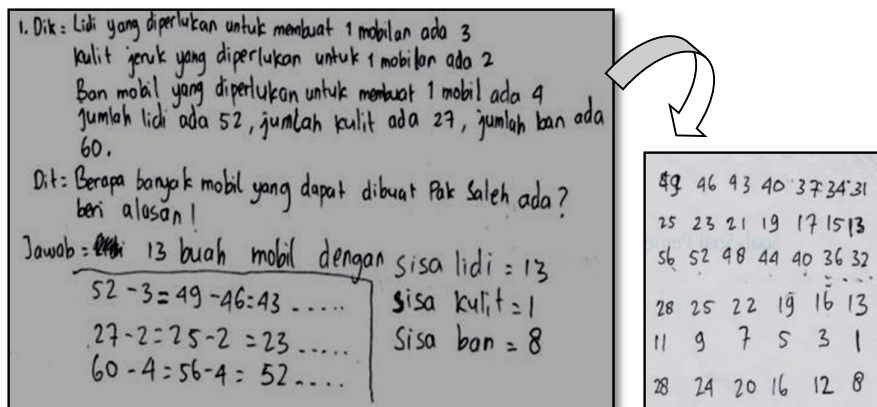 1. Dik = Lidi yang diperlukan untuk membuat 1 mobilan ada 3
Kulit jeruk yang diperlukan untuk 1 mobilan ada 2
Ban mobil yang diperlukan untuk membuat 1 mobil ada 4
Jumlah lidi ada 52, jumlah kulit ada 27, jumlah ban ada
60.
Dit = Berapa banyak mobil yang dapat dibuat Pak Saleh ada?
beri alasan!
Jawab = 13 buah mobil dengan
52 - 3 = 49 - 46 = 43 .....
27 - 2 = 25 - 2 = 23 .....
60 - 4 = 56 - 4 = 52 ....
Sisa lidi = 13
Sisa kulit = 1
Sisa ban = 8
49 46 43 40 37 34 31
25 23 21 19 17 15 13
56 52 48 44 40 36 32
28 25 22 19 16 13
11 9 7 5 3 1
28 24 20 16 12 8